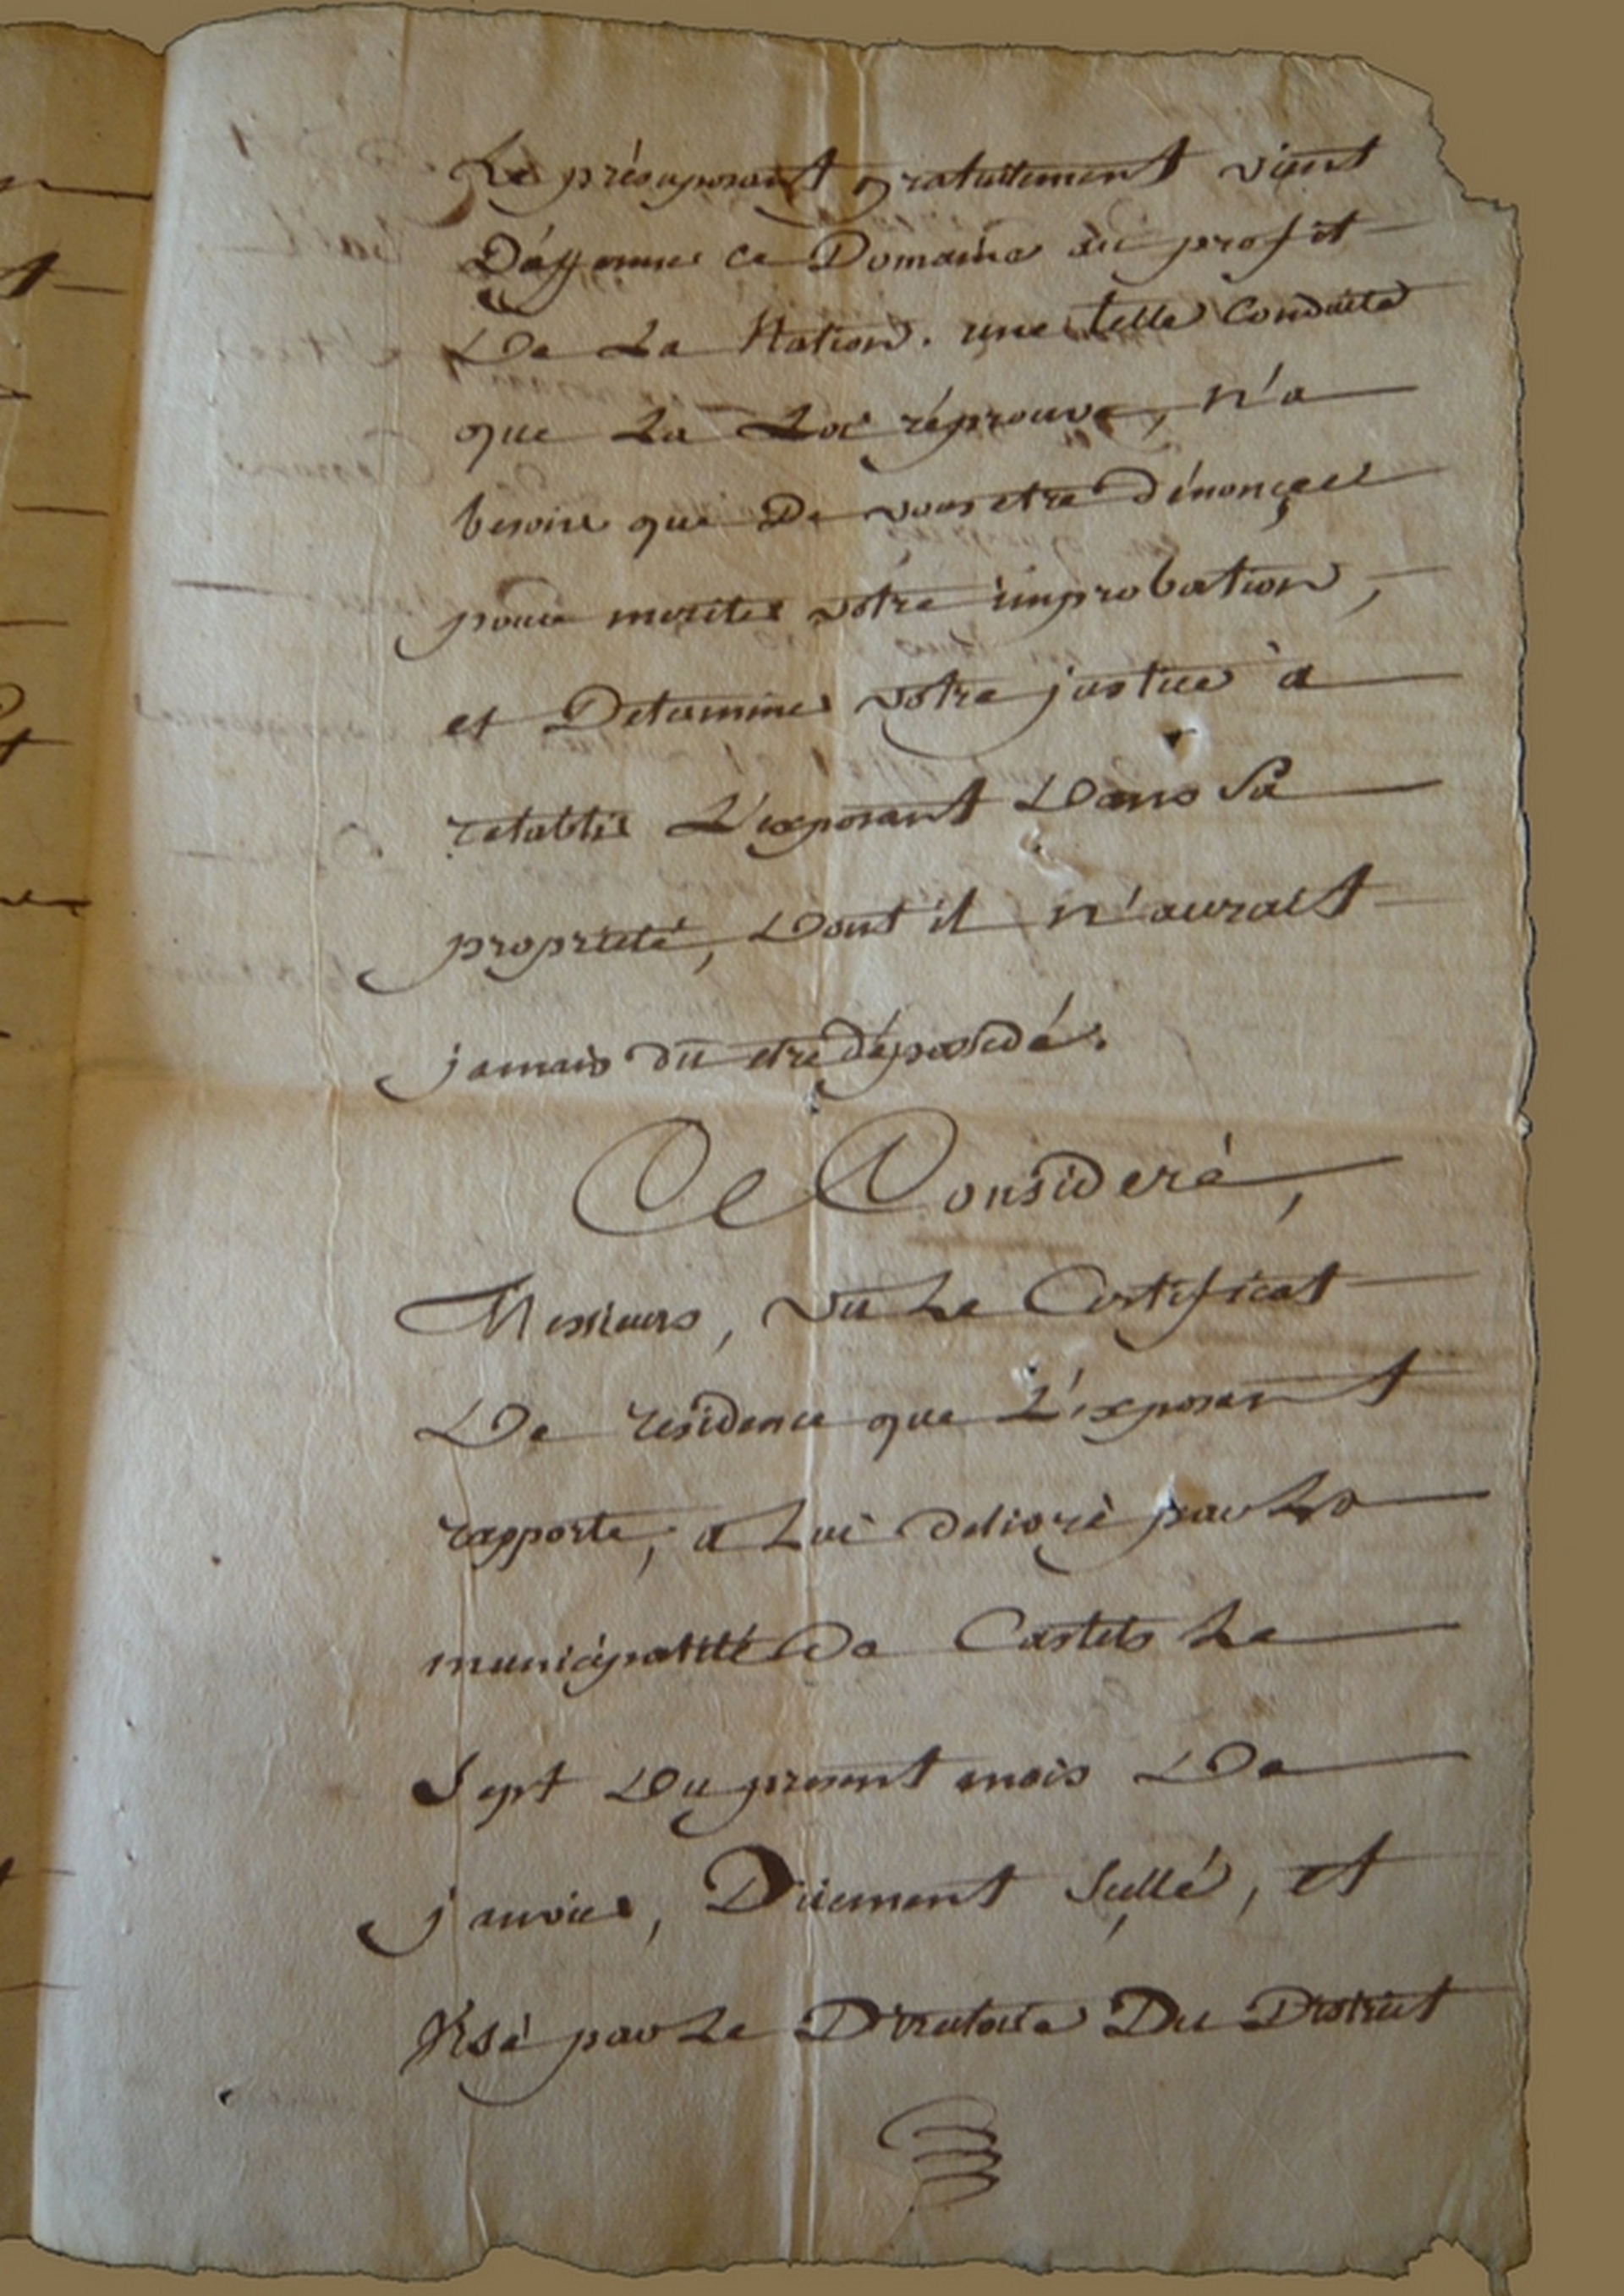 Le présuposant gratuitement vient
D'affermer ce Domaine au profit
De La Nation. une telle Conduite
que La Loi réprouve, n'a
besoin que De vous etre dénonçee
pour meriter votre improbation,
et Determiner votre justice à
retablir L'exposant Dans Sa
proprieté, Dont il n'auroit
jamais dû etre dépossedé.
Ce Consideré,
Messieurs, vu Le Certificat
De residence que L'exposant
rapporte, a Lui delivré par La
municipalité De Castets Le
Sept Du present mois De
janvier, Düement Sçellé, et
Visé par Le Directoire Du District